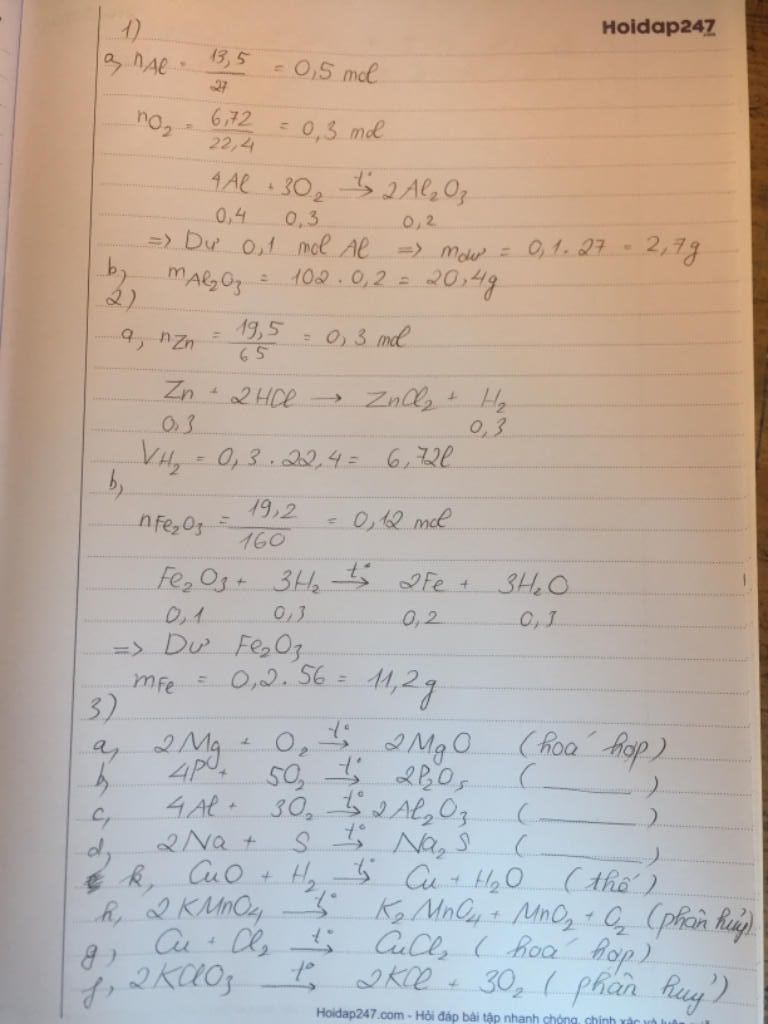 Hoidap247
.com
1)
a, nAl = 13,5/27 = 0,5 mol
nO₂ = 6,72/22,4 = 0,3 mol
4Al + 3O₂ —t°→ 2Al₂O₃
0,4 0,3 0,2
=> Dư 0,1 mol Al => mdư = 0,1.27 = 2,7g
b, mAl₂O₃ = 102.0,2 = 20,4g
2)
a, nZn = 19,5/65 = 0,3 mol
Zn + 2HCl → ZnCl₂ + H₂
0,3 0,3
VH₂ = 0,3.22,4 = 6,72l
b,
nFe₂O₃ = 19,2/160 = 0,12 mol
Fe₂O₃ + 3H₂ —t°→ 2Fe + 3H₂O
0,1 0,3 0,2 0,3
=> Dư Fe₂O₃
mFe = 0,2.56 = 11,2g
3)
a, 2Mg + O₂ —t°→ 2MgO (hoá hợp)
b, 4P + 5O₂ —t°→ 2P₂O₅ (______)
c, 4Al + 3O₂ —t°→ 2Al₂O₃ (______)
d, 2Na + S —t°→ Na₂S (______)
k, CuO + H₂ —t°→ Cu + H₂O (thế)
h, 2KMnO₄ —t°→ K₂MnO₄ + MnO₂ + O₂ (phân huỷ)
g, Cu + Cl₂ —t°→ CuCl₂ (hoá hợp)
f, 2KClO₃ —t°→ 2KCl + 3O₂ (phân huỷ)
Hoidap247.com - Hỏi đáp bài tập nhanh chóng, chính xác và